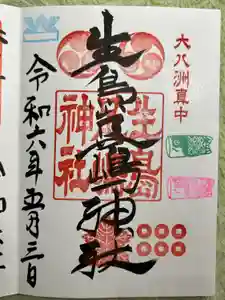 大八洲真中
生島足島神社
生島足島神社
令和六年五月三日